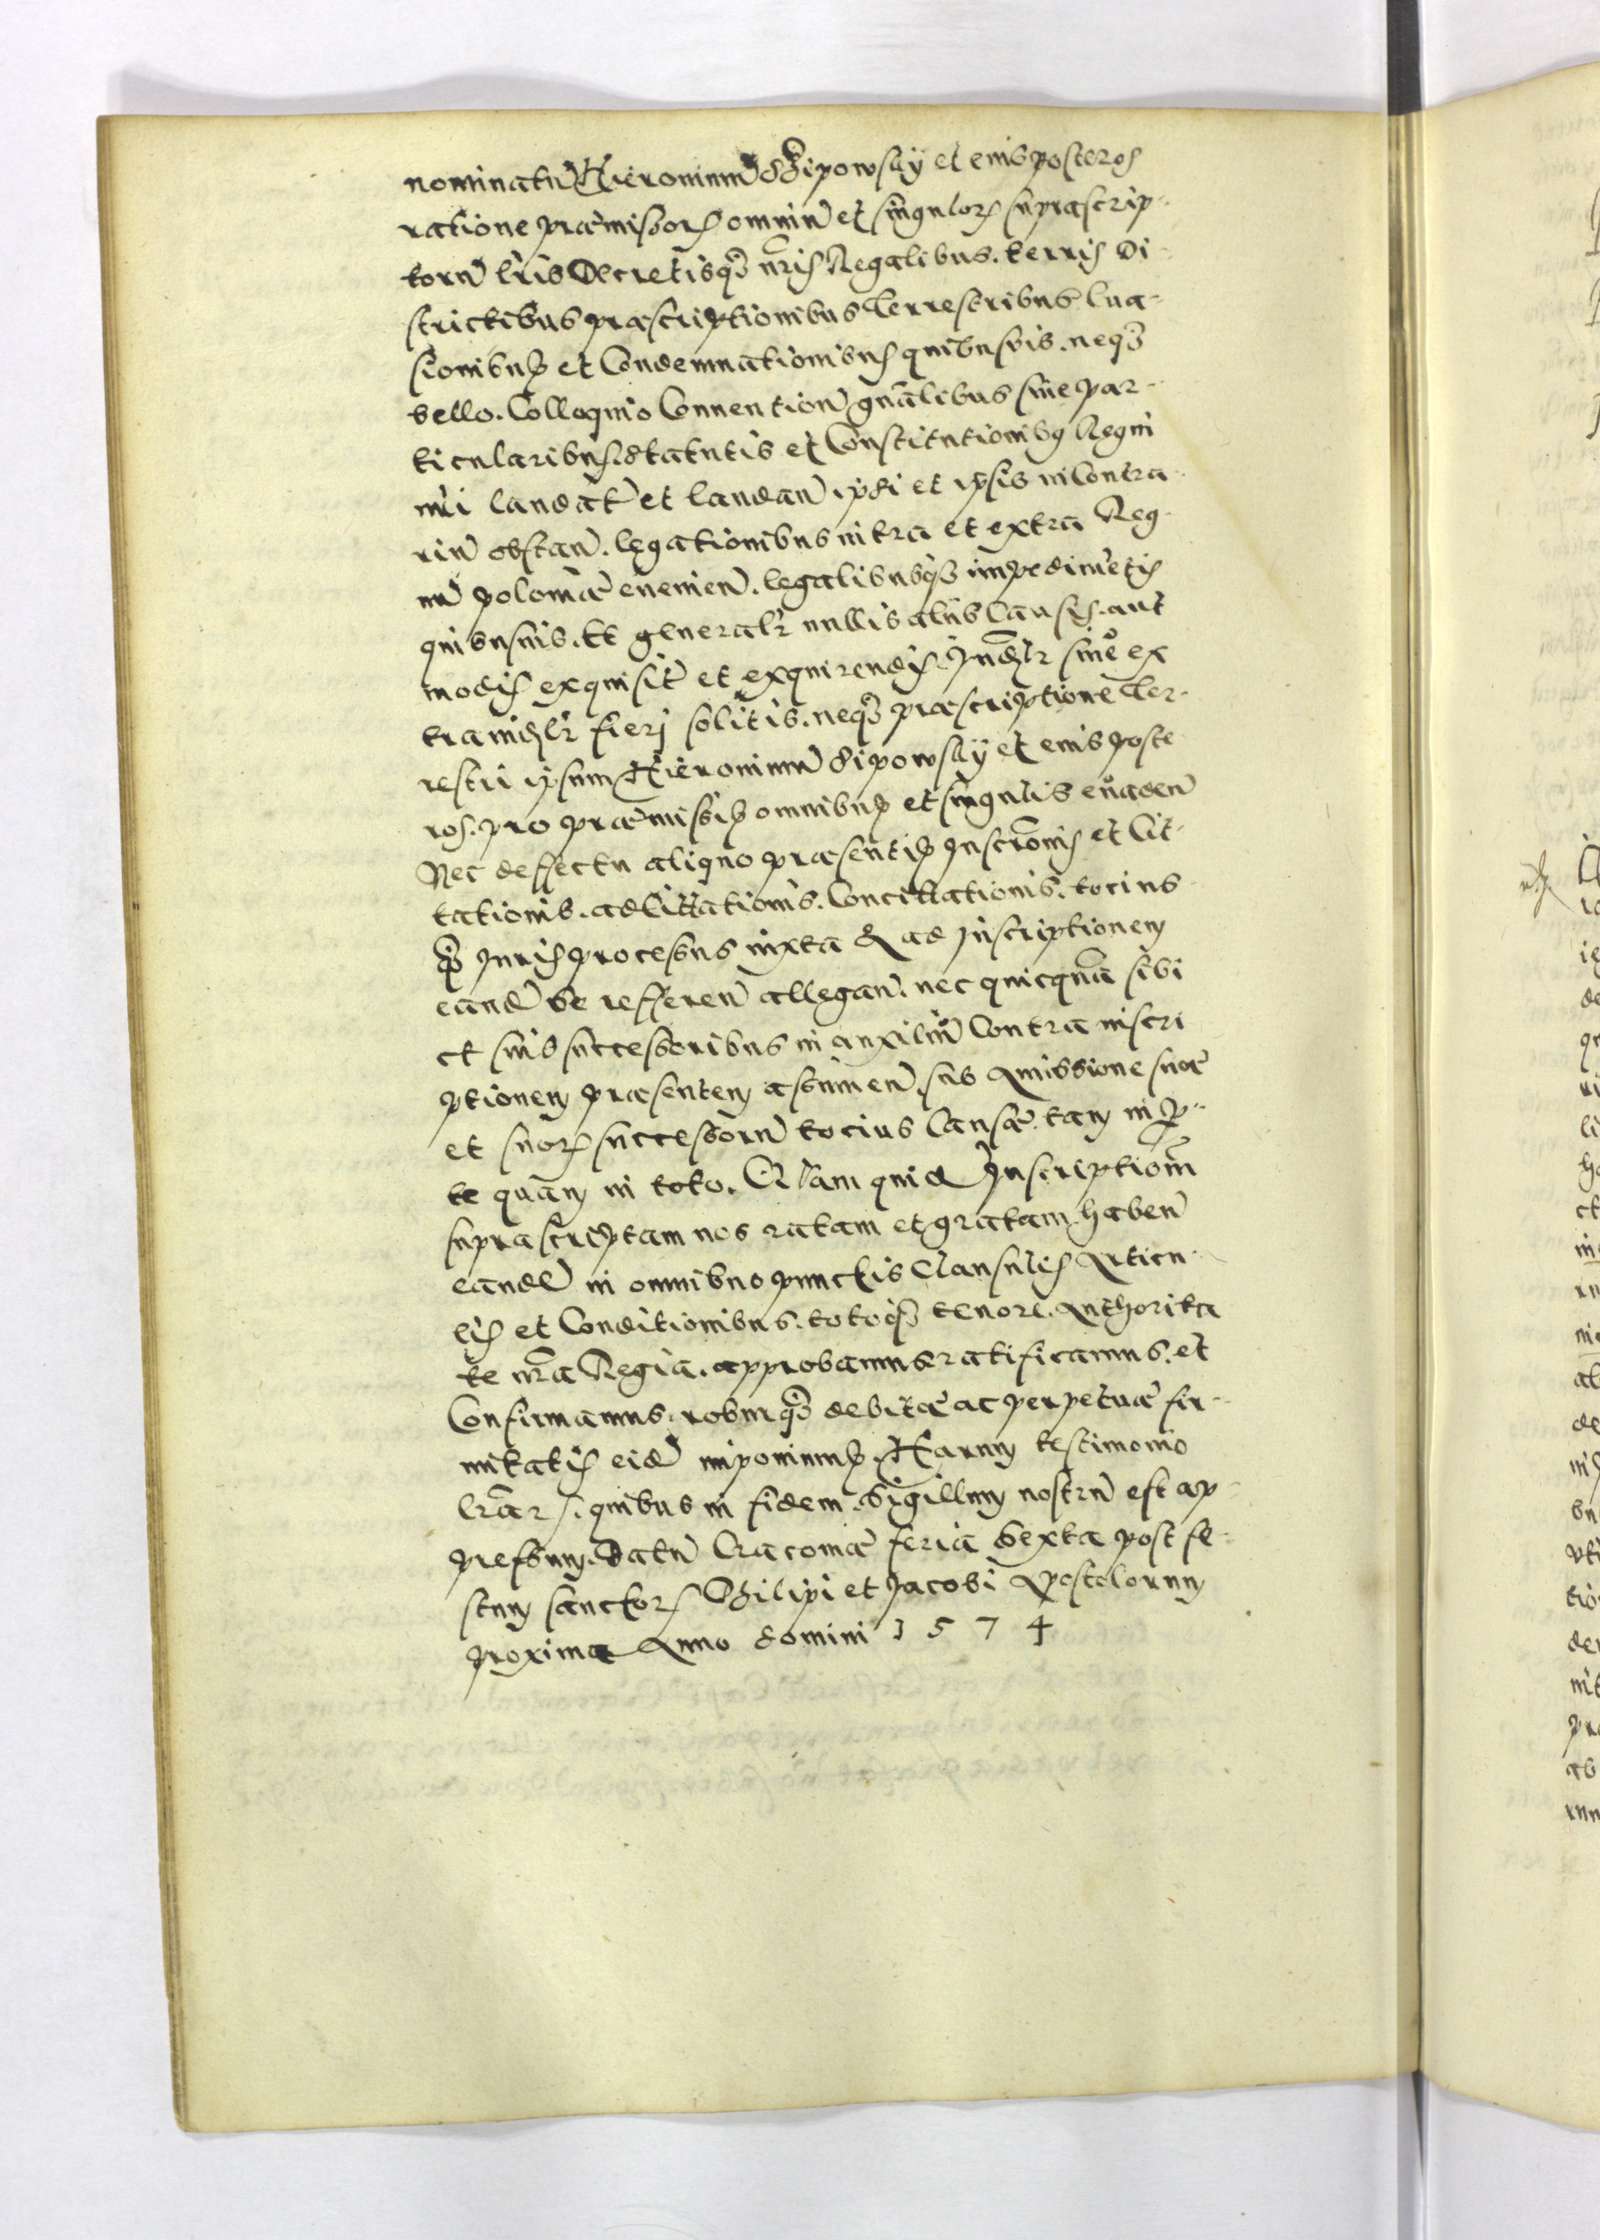 nominatū Hieronimū Sipowsky et eius posteros
ratione præmissorȝ omniū et singulorȝ suprascrip-
torū lr̄is Decretisqȝ nr̄is Regalibus. terris Di-
strictibus præscriptionibus Terrestribus Eua-
sionibus et Condemnationibus quibusvis. neqȝ
bello. Colloquio Conuention̄ gnālibus siue par-
ticularibus. Statutis et Constitutionibꝯ Regni
nr̄i laudat̄ et laudan̄ ipsi et ipsis in Contra-
riū obstan̄. legationibus intra et extra Reg-
nū poloniæ euenien̄. legalibusqȝ impedimētis
quibusuis. Et generalr̄ nullis aliis Causis. aut
modis exquisit̄ et exquirendis. Iudlr̄ siue ex
traiudlr̄ fierj solitis. neqȝ præscriptione Ter-
restri ipsum Hieronimū Sipowsky et eius poste
ros. pro præmissis omnibus et singulis euaden̄
Nec deffectu aliquo præsentis Inscrōnis et Cit-
tationis. adCittationis. Concittationis. tocius
qȝ Iuris processus iuxta & ad Inscriptionem
eandē se refferen̄ allegan̄. nec quicquā sibi
et suis successoribus in auxiliū Contra inscri
ptionem præsentem assumen̄. sub Amissione suæ
et suorȝ successorū tocius Causæ. tam in p̱-
te quam in toto. Quam quid Inscriptionē
suprascriptam nos ratam et gratam haben̄
eandē in omnibus punctis Clausulis Articu-
lis et Conditionibus. totoqȝ tenore. Authorita
te nr̄a Regia. approbamus ratificamus. et
Confirmamus. roburqȝ debitæ ac perpetuæ fir-
mitatis eidē imponimus. Harum testimonio
lrārȝ. quibus in fidem. Sigillum nostrū est ap-
pressum. Datū Cracouiæ feria Sexta post fe-
stum sanctorȝ Philipi et Jacobi Apostolorum
proxima Anno domini 1574